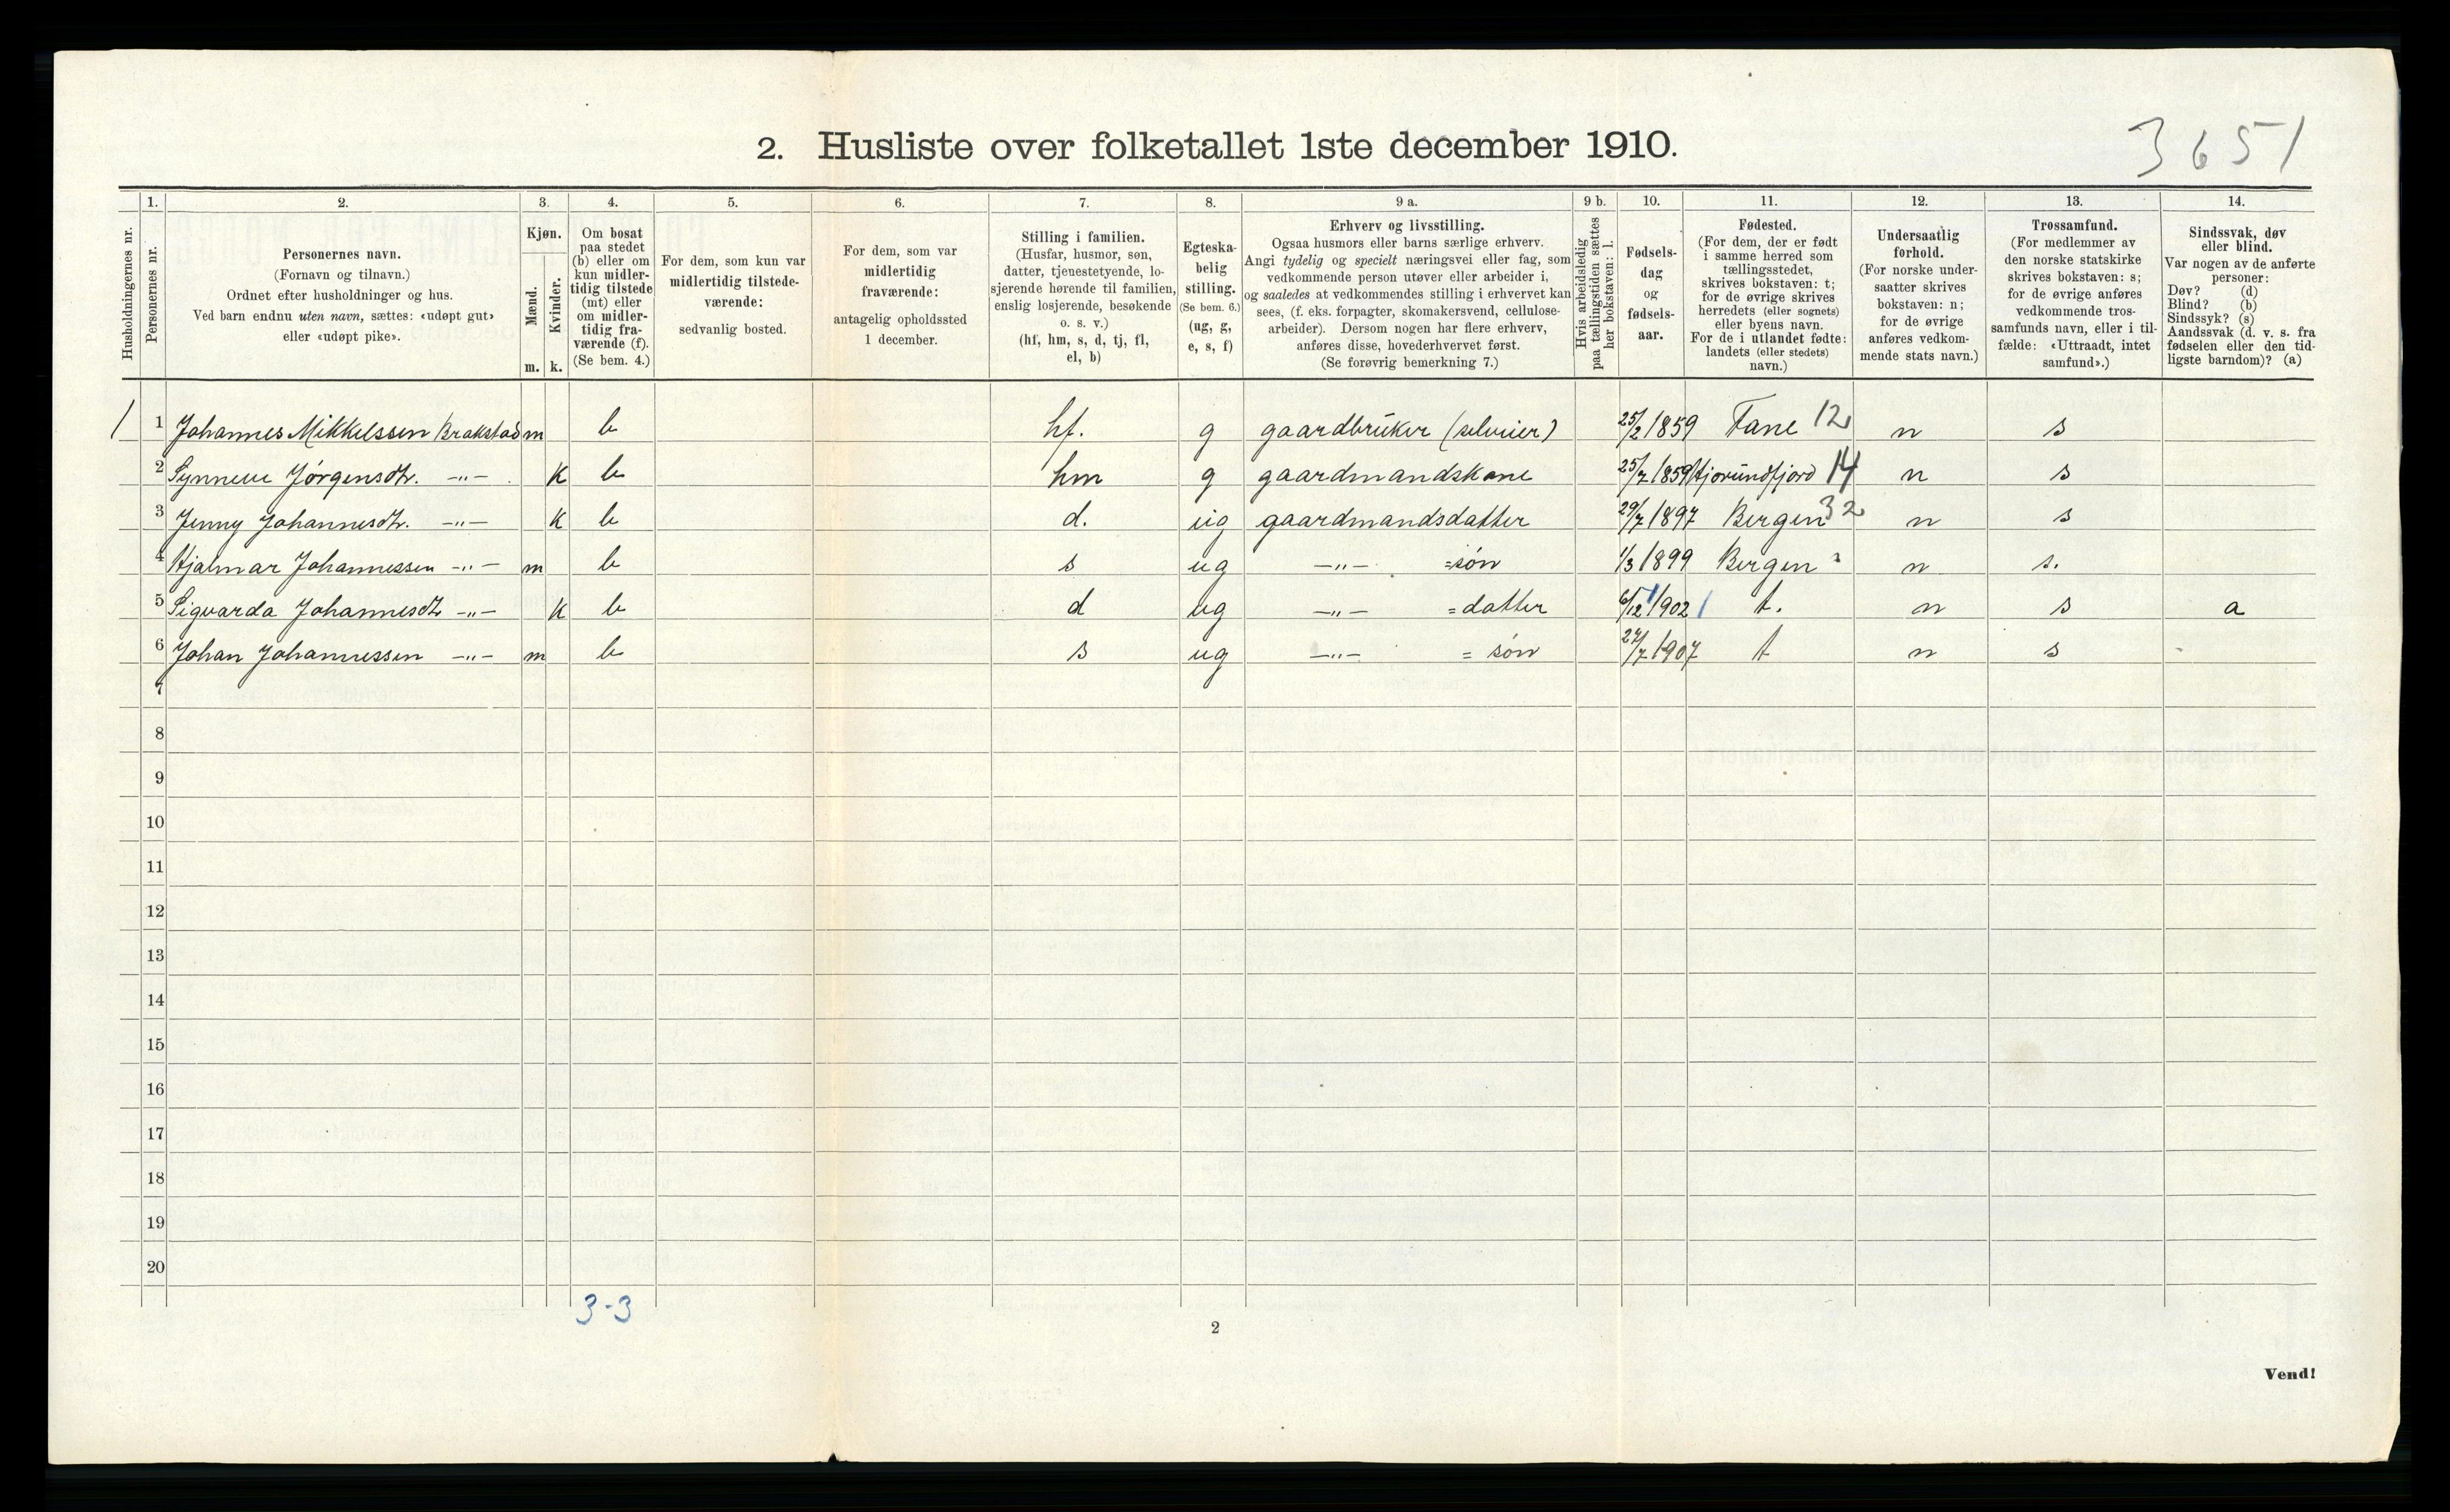 3651
2. Husliste over folketallet 1ste december 1910.
Husholdningernes nr.
1.
Personernes nr.
2.
Personernes navn.
(Fornavn og tilnavn.)
Ordnet efter husholdninger og hus.
Ved barn endnu uten navn, sættes: «udøpt gut»
eller «udøpt pike».
3.
Kjøn.
Mænd.
Kvinder.
m. k.
4.
Om bosat
paa stedet
(b) eller om
kun midler-
tidig tilstede
(mt) eller
om midler-
tidig fra-
værende (f).
(Se bem. 4.)
5.
For dem, som kun var
midlertidig tilstede-
værende:
sedvanlig bosted.
6.
For dem, som var
midlertidig
fraværende:
antagelig opholdssted
1 december.
7.
Stilling i familien.
(Husfar, husmor, søn,
datter, tjenestetyende, lo-
sjerende hørende til familien,
enslig losjerende, besøkende
o. s. v.)
(hf, hm, s, d, tj, fl,
el, b)
8.
Egteska-
belig
stilling.
(Se bem. 6.)
(ug, g,
e, s, f)
9 a.
Erhverv og livsstilling.
Ogsaa husmors eller barns særlige erhverv.
Angi tydelig og specielt næringsvei eller fag, som
vedkommende person utøver eller arbeider i,
og saaledes at vedkommendes stilling i erhvervet kan
sees, (f. eks. forpagter, skomakersvend, cellulose-
arbeider). Dersom nogen har flere erhverv,
anføres disse, hovederhvervet først.
(Se forøvrig bemerkning 7.)
9 b.
Hvis arbeidsledig
paa tællingstiden sættes
her bokstaven: l.
10.
Fødsels-
dag
og
fødsels-
aar.
11.
Fødested.
(For dem, der er født
i samme herred som
tællingsstedet,
skrives bokstaven: t;
for de øvrige skrives
herredets (eller sognets)
eller byens navn.
For de i utlandet fødte:
landets (eller stedets)
navn.)
12.
Undersaatlig
forhold.
(For norske under-
saatter skrives
bokstaven: n;
for de øvrige
anføres vedkom-
mende stats navn.)
13.
Trossamfund.
(For medlemmer av
den norske statskirke
skrives bokstaven: s;
for de øvrige anføres
vedkommende tros-
samfunds navn, eller i til-
fælde: «Uttraadt, intet
samfund».)
14.
Sindssvak, døv
eller blind.
Var nogen av de anførte
personer:
Døv? (d)
Blind? (b)
Sindssyk? (s)
Aandssvak (d. v. s. fra
fødselen eller den tid-
ligste barndom)? (a)
1 1 Johannes Mikkelssen Brakstad m b hf. g gaardbruker (selveier) 25/2 1859 Fane 12 n s
2 Synneve Jørgensdtr. -"- k b hm g gaardmandskone 25/7 1859 Hjørundfjord 14 n s
3 Jenny Johannesdtr. -"- k b d. ug gaardmandsdatter 29/7 1897 Bergen 32 n s
4 Hjalmar Johannessen -"- m b s ug -"- =søn 1/3 1899 Bergen n s.
5 Sigvarda Johannesdtr -"- k b d ug -"- =datter 6/12 1902 t. n s a
6 Johan Johannessen -"- m b s ug -"- =søn 27/7 1907 t n s
7
8
9
10
11
12
13
14
15
16
17
18
19
20
3-3
2
Vend!